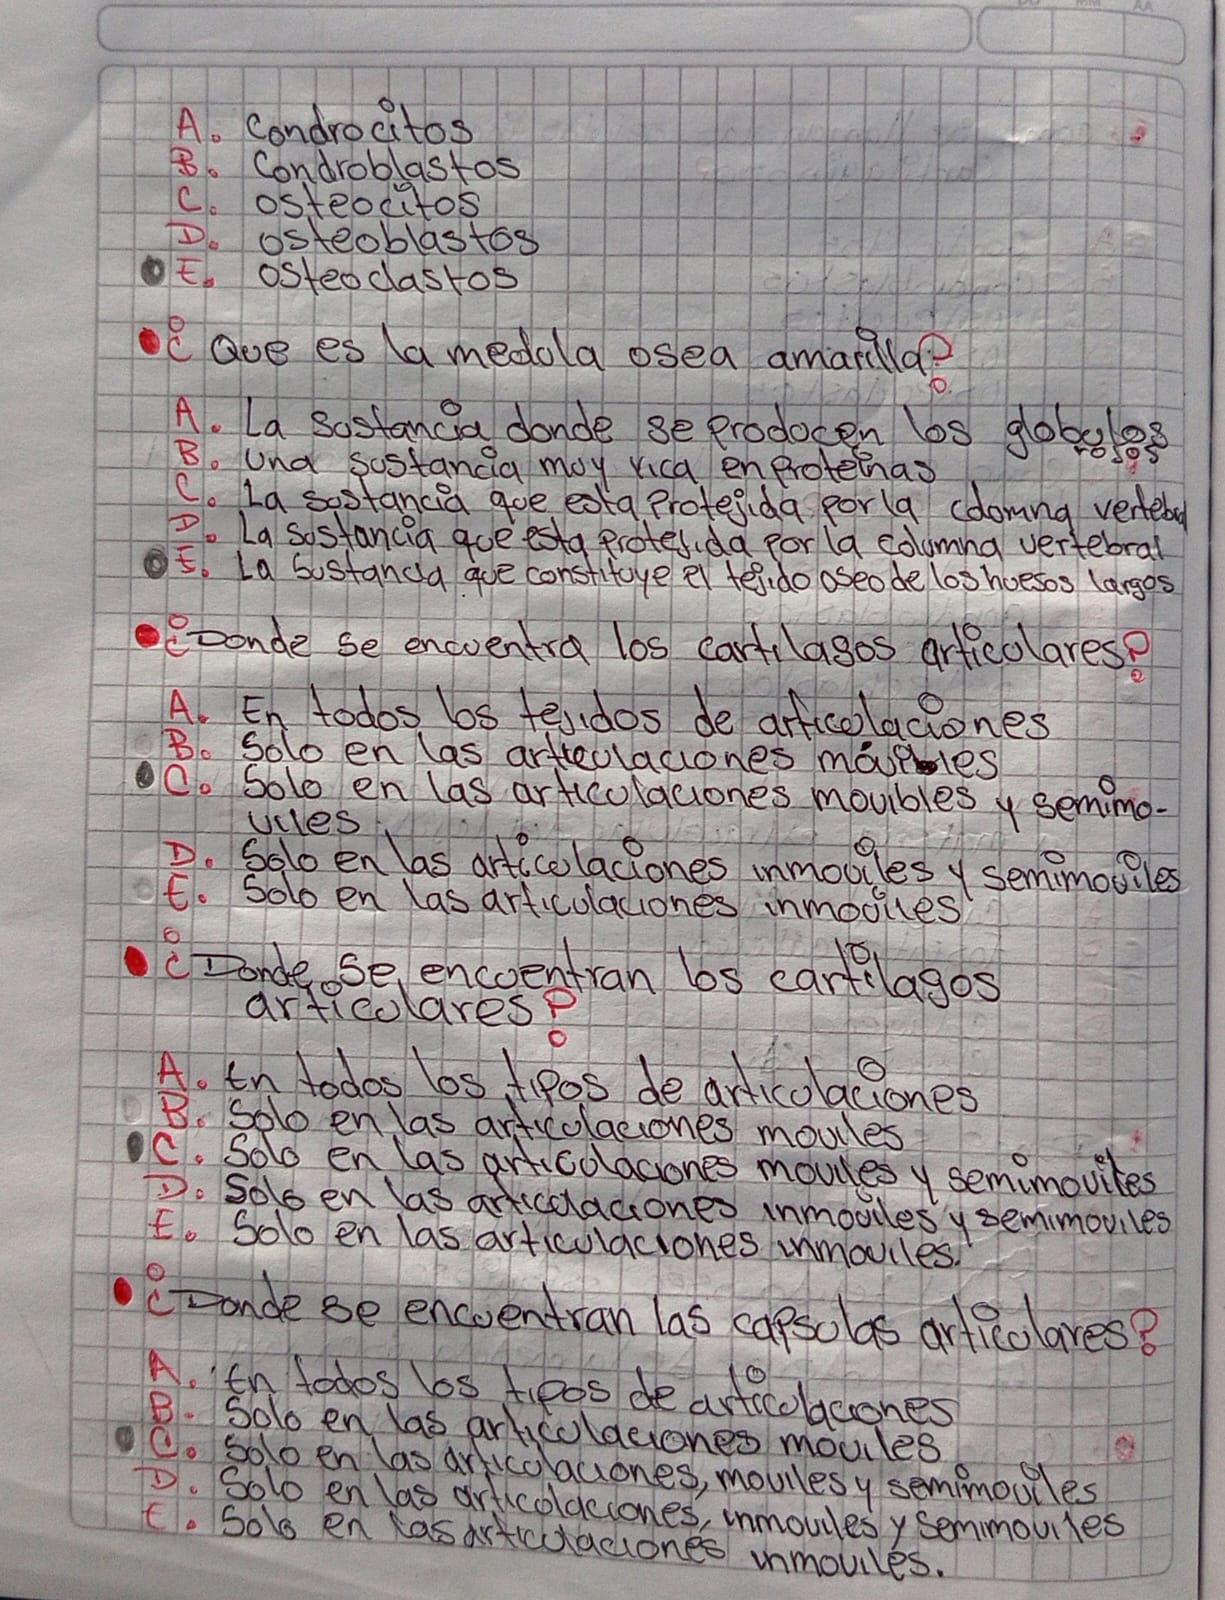 A. Condrocitos
B. Condroblastos
C. osteocitos
D. osteoblastos
E. osteoclastos
¿ Que es la medula osea amarilla?
A. La sustancia donde se producen los globulos rojos
B. Una sustancia muy rica en proteinas
C. La sustancia que esta protejida por la columna vertebral
D. La sustancia que esta protejida por la columna vertebral
E. La sustancia que constituye el tejido oseo de los huesos largos
¿Donde se encuentra los cartilagos articulares?
A. En todos los tejidos de articulaciones
B. Solo en las articulaciones
C. Solo en las articulaciones movibles y semimo-
viles
D. Solo en las articulaciones inmoviles y semimoviles
E. Solo en las articulaciones inmoviles
¿Donde se encuentran los cartilagos
articulares?
A. En todos los tipos de articulaciones
B. Solo en las articulaciones moviles
C. Solo en las articulaciones moviles y semimoviles
D. Solo en las articulaciones inmoviles y semimoviles
E. Solo en las articulaciones inmoviles.
¿Donde se encuentran las capsulas articulares?
A. En todos los tipos de articulaciones
B. Solo en las articulaciones moviles
C. Solo en las articulaciones, moviles y semimoviles
D. Solo en las articulaciones, inmoviles y semimoviles
E. Solo en las articulaciones inmoviles.